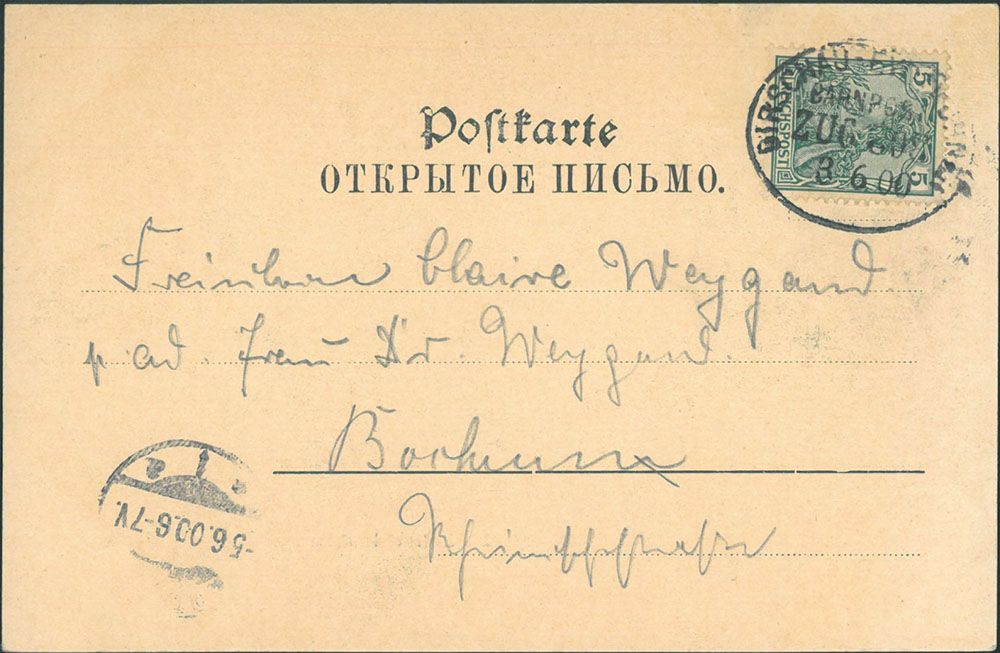 Postkarte
ОТКРЫТОЕ ПИСЬМО.
5 REICHSPOST 5
DIRSCHAU-
BAHNPOST
ZUG
3 6 00
Claire Weygand
p ad. Frau Dr. Weygand.
Bochum
5.6.00.6-7V.